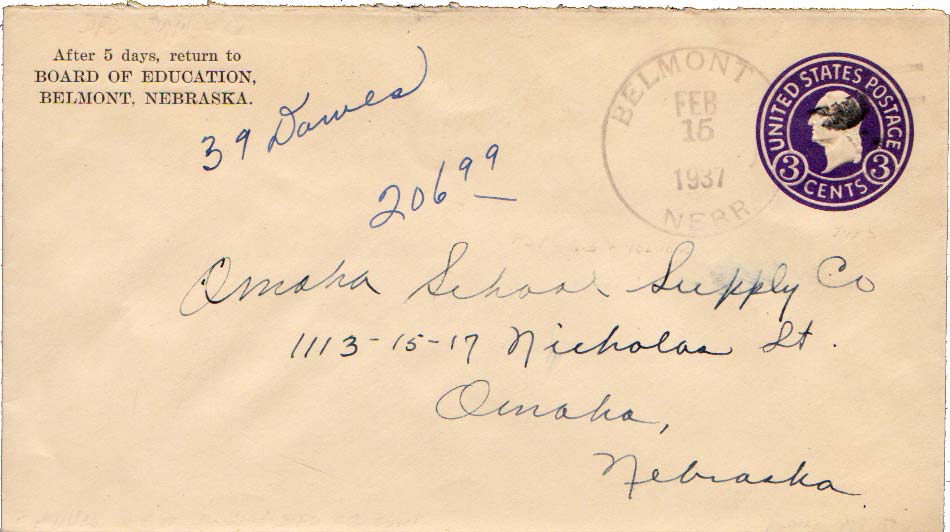 After 5 days, return to
BOARD OF EDUCATION,
BELMONT, NEBRASKA.
39 Dawes
20699
BELMONT
FEB
15
1937
NEBR
UNITED STATES POSTAGE
3 CENTS 3
Omaha School Supply Co
1113-15-17 Nicholas St.
Omaha,
Nebraska